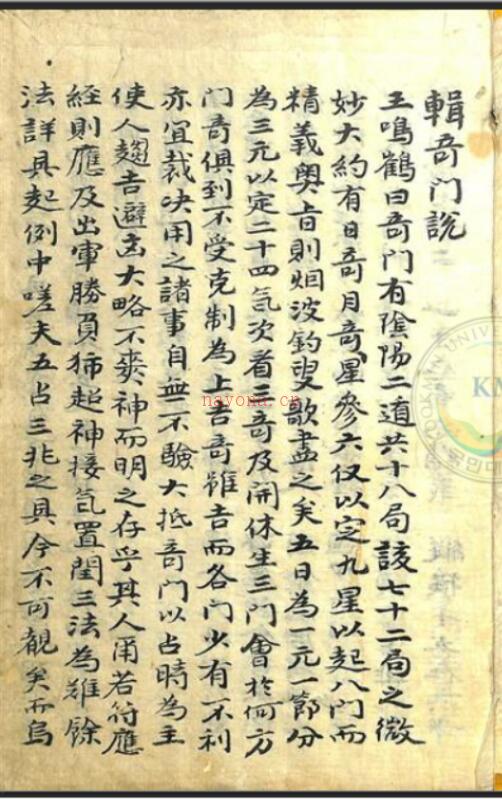 輯奇門說
王鳴鶴曰奇門有陰陽二遁共十八局該七十二局之微
妙大約有日奇月奇星參六仪以定九星以起八門而
精義奥旨則烟波釣叟歌盡之矣五日為一元一節分
為三元以定二十四氣次看三奇及開休生三門會於何方
門奇俱到不受克制為上吉奇雖吉而各門少有不利
亦宜裁决用之諸事自無不驗大抵奇門以占時為主
使人趨吉避凶大略不爽神而明之存乎其人甭若符應
經則應及出軍勝負獅起神接氣置閏三法為雖餘
法詳具起例中嗟夫五占三兆之具今不可覩矣而烏
nayona.cn
UNIVER
KM